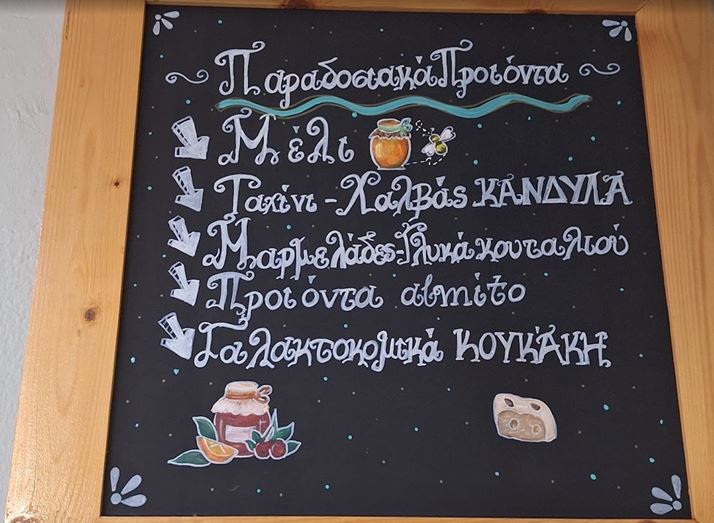 Παραδοσιακά Προιόντα
Μέλι
Ταχίνι - Χαλβάς ΚΑΝΔΥΛΑ
Μαρμελάδες - Γλυκά κουταλιού
Προιόντα almito
Γαλακτοκομικά ΚΟΥΚΆΚΗ